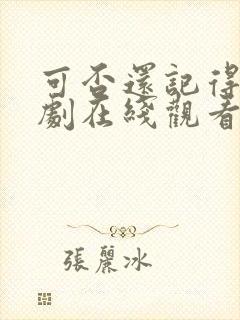 可否還記得
劇在綫觀看
張麗冰